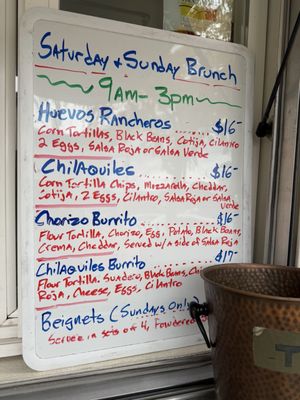 Saturday & Sunday Brunch
9am-3pm
Huevos Rancheros ...... $16-
Corn Tortillas, Black Beans, Cotija, Cilantro
2 Eggs, Salsa Roja or Salsa Verde
Chilaquiles ...... $16-
Corn Tortilla Chips, Mozzarella, Cheddar,
Cotija, 2 Eggs, Cilantro, Salsa Roja or Salsa
Verde
Chorizo Burrito ...... $16-
Flour Tortilla, Chorizo, Egg, Potato, Black Beans,
Crema, Cheddar, Served w/ a side of Salsa Roja
Chilaquiles Burrito ...... $17-
Flour Tortilla, Black Beans,
Roja, Cheese, Eggs, Cilantro
Beignets (Sundays Only
Served in sets of 4, Powdered